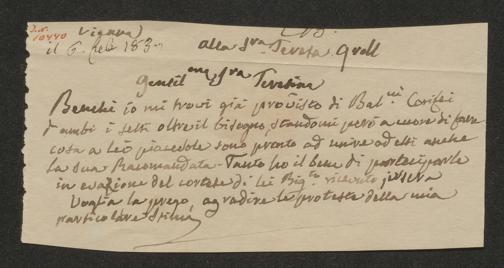 I.N.
10440
Vienna
il 6 feb: 183
alla Sra. Teresa Groll
Gentil.ma Sra Teresina
Benchè io mi trovi già provisto di Bal.ni Corifei
d'ambi i sessi oltre il bisogno, standomi però a cuore di fare
cosa a Lei piacevole sono pronto ad unire ad essi anche
la sua Racomandata. Tanto ho il bene di parteciparle
in evasione del cortese di lei Big.to ricevuto jersera
Voglia la prego, agradire le proteste della mia
particolare stima